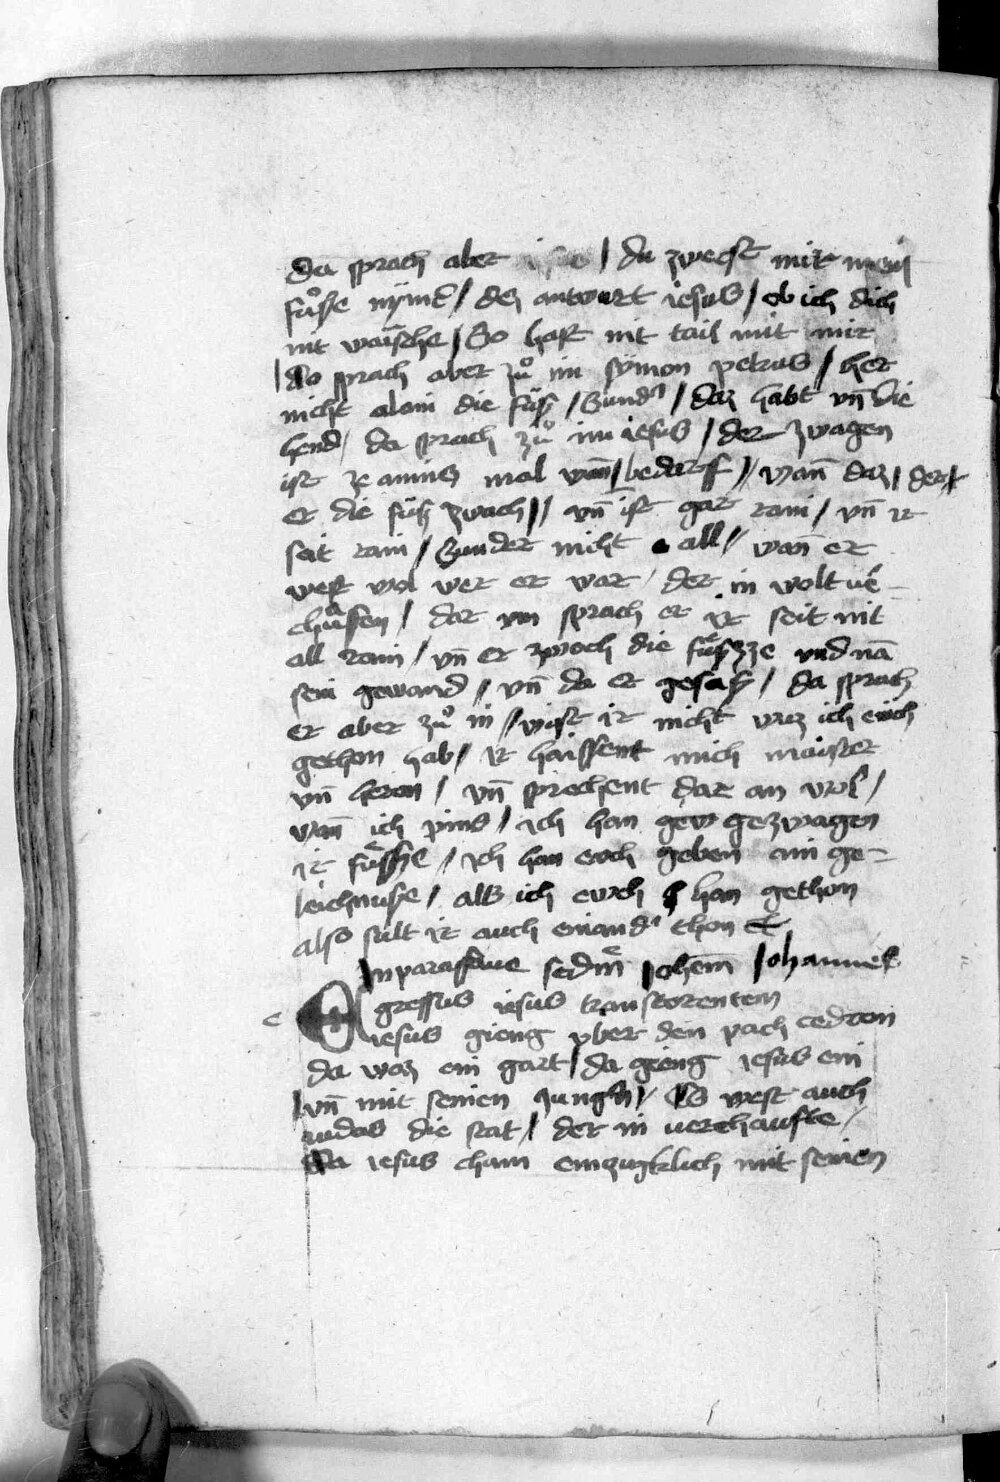 da sprach aber / du zwechst mir mein
fuͦsse nymer / dez antwurt iesus / ob ich dich
nit waische / So hast nit tail mit mir
/ do sprach aber zuͦ im symon petrus / her
nicht alain die fuͤsz / Sunder / daz habt vn̄ die
hend / da sprach zuͦ im iesus / der zwagen
ist ze ainis mal / bedarff // wan̄ daz / der
er die fuͤsz zwach // vn̄ ist gar rain / vn̄ ir
seit rain / Sunder nicht all / wan̄ er
west wol wer er war / der in wolt ver
chauͤsen / dar vm sprach er ir seit nit
all rain / vn̄ er zwoch die fuͤszze vnd nam
sein gewand / vn̄ da er gesasz / da sprach
er aber zuͦ in / wist ir nicht waz ich euch
gethon hab / ir haissent mich maister
vn̄ heren / vn̄ sprechent dar an wol /
wan̄ ich pins / ich han gezwagen
ir fuͤsse / ich han euch geben ain ge=
leichnusse / als ich euch han gethon
also sult ir auch einander thon
In parasceue sedm̄ Johem̄ Johannes
Egressus iesus trans torentem
iesus gieng vber den pach cedron
da waz ein gart / da gieng iesus ein
vn̄ mit seinen Jungern / Es west auch
iudas die stat / der in verchaufte /
Da iesus cham mit seinen